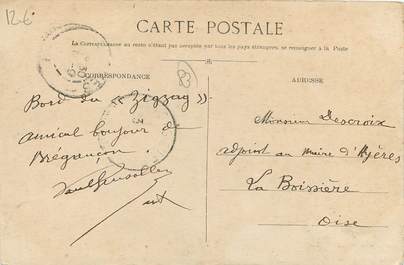 126
CARTE POSTALE
La Correspondance au recto n'étant pas acceptée par tous les pays étrangers, se renseigner à la Poste
CORRESPONDANCE
ADRESSE
Bord du « Zigzag »
amical bonjour de
Brégançon.
Monsieur Descroix
adjoint au maire d'Hyères
La Boissière
Oise